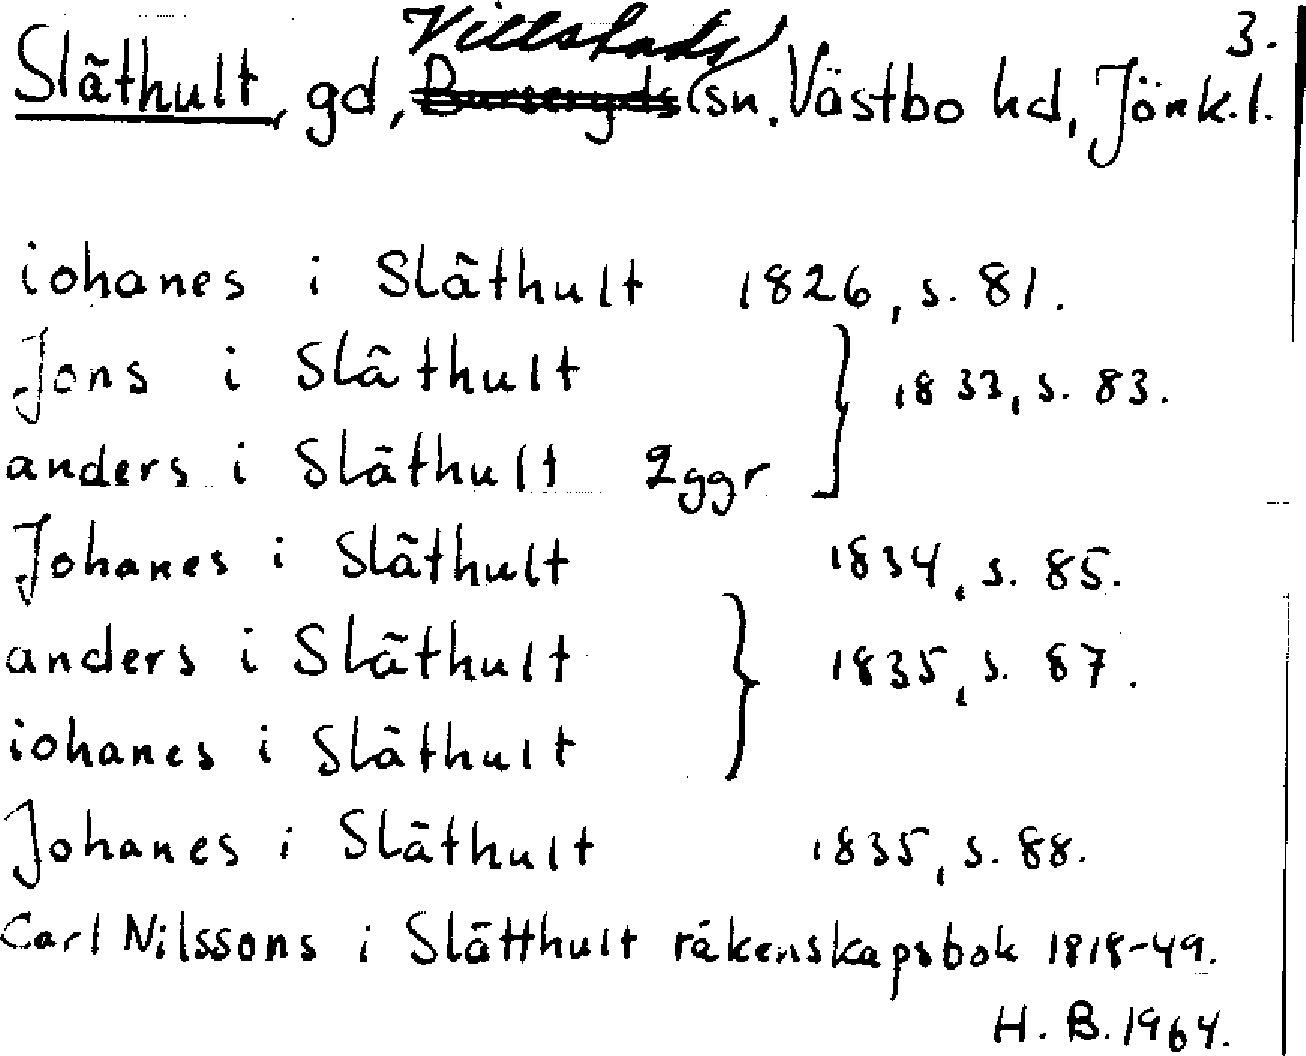 3.
Villstads
Slãthult, gd, Burseryds (sn. Västbo hd, Jönk.l.
iohanes i Slãthult 1826, s. 81.
Jons i Slãthult
1833, s. 83.
anders i Slãthult 2ggr
Johanes i Slãthult 1834, s. 85.
anders i Slãthult 1835, s. 87.
iohanes i Slãthult
Johanes i Slãthult 1835, s. 88.
Carl Nilssons i Slãtthult räkenskapsbok 1818-49.
H. B. 1964.